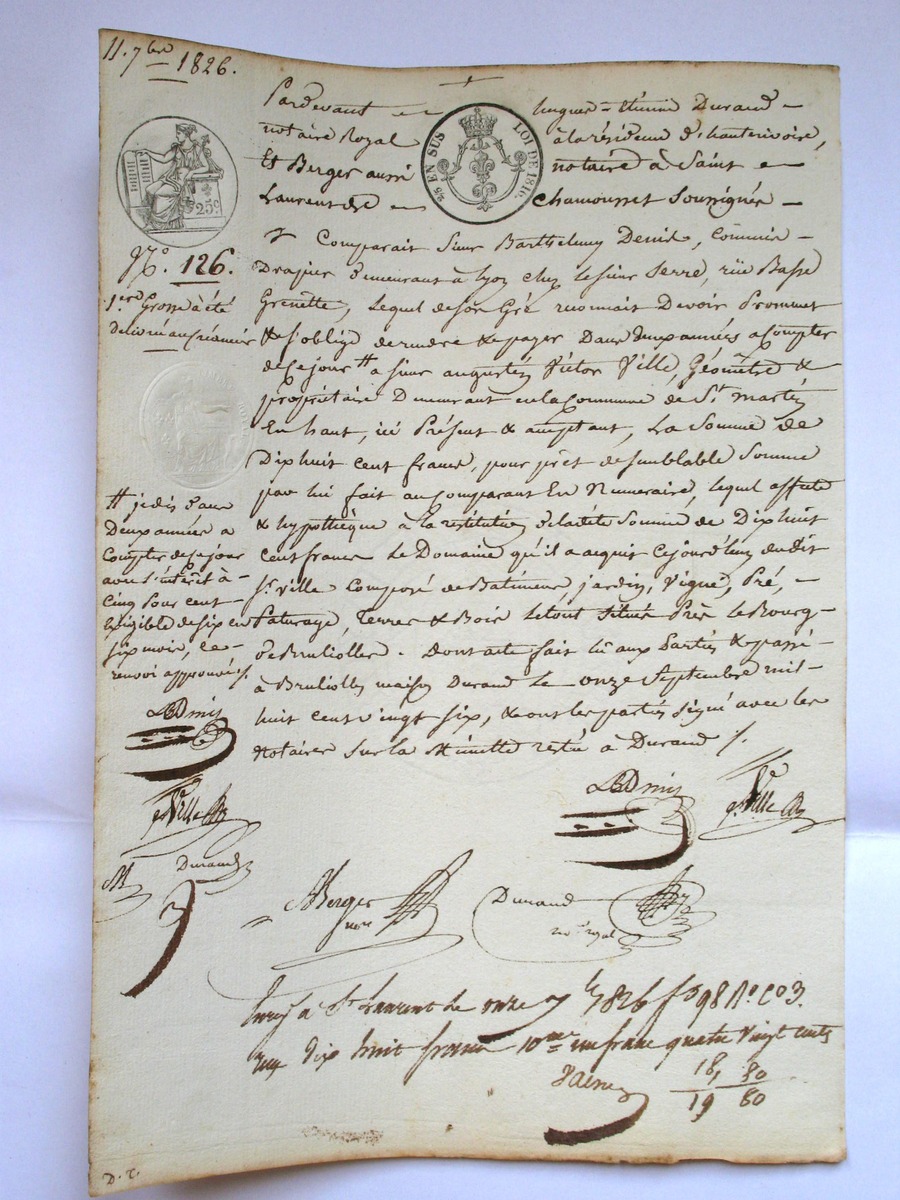 11. 7bre 1826.
Pardevant hugues = étienne Durand
notaire Royal à la résidence d'hauterivoire,
Et Berger aussi notaire à Saint
Laurent de Chamousset Soussignés
2/5 EN SUS LOI DE 1816.
25c
No. 126.
1ere Grosse à été
délivré au Créancier
Comparait Sieur Barthelemy Denis, Commis
Drapier demeurant à lyon chez le sieur Serre, rüe Basse
Grenette, lequel de son Gré reconnait Devoir Promet
& s'oblige de rendre & de payer Dans deux années a Compter
de Ce jour # a sieur augustin Victor Ville, Géomètre &
propriétaire Demeurant en la Commune de St martin
En haut, ici Présent & acceptant, La Somme de
Dix huit cent francs, pour prêt de semblable Somme
par lui fait au Comparant En Numéraire, lequel affecte
& hypothèque à la restitution de ladite Somme de Dix huit
cent francs Le Domaine qu'il a acquit Cejourd'huy dudit
Sr Ville Composé de Batiment, jardin, Vigne, Pré,
Paturage, Terres & Bois le tout Situé Près le Bourg
de Brullioles. Dont acte fait lû aux Parties & passé
à Brulioles maison Durand Le onze Septembre mil
huit cent vingt six, & ont les parties signé avec les
Notaires Sur la Minutte restée à Durand /.
# je dis dans
Deux année a
Compter de Ce jour
avec l'intérêt à
Cinq Pour cent
Exigible de six en
six mois, le
renvoi approuvé /.
Denis
Ville
Durand
Denis
Ville
Berger
nore
Durand
not. royal
Enrg à St Laurent Le onze 7bre 1826 fo 98 No Co 3.
dix huit francs 10me un franc quatre Vingt cents
18, 80
19 80
D. C.